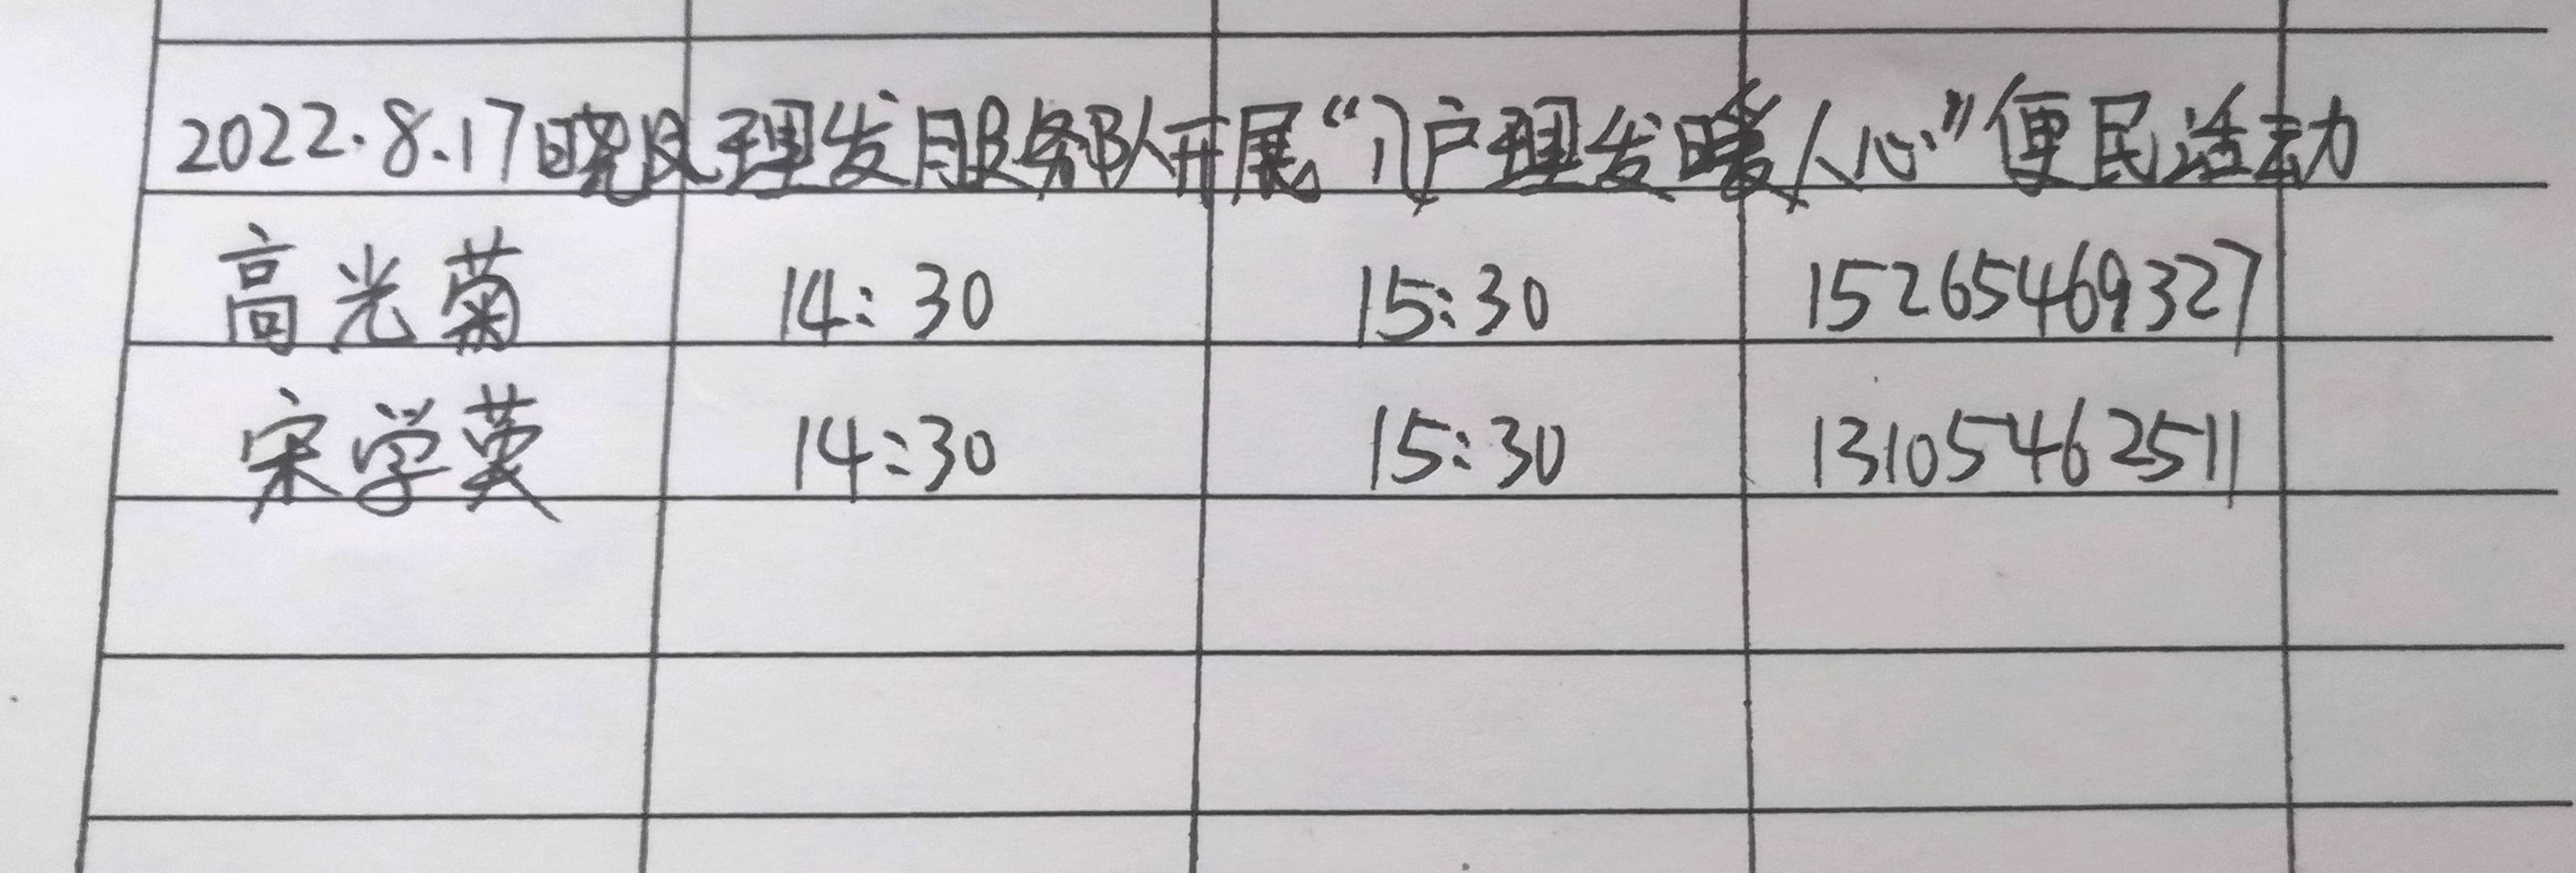 2022.8.17晓风理发服务队开展“入户理发暖人心”便民活动
高光菊 14:30 15:30 15265469327
宋学英 14:30 15:30 13105462511